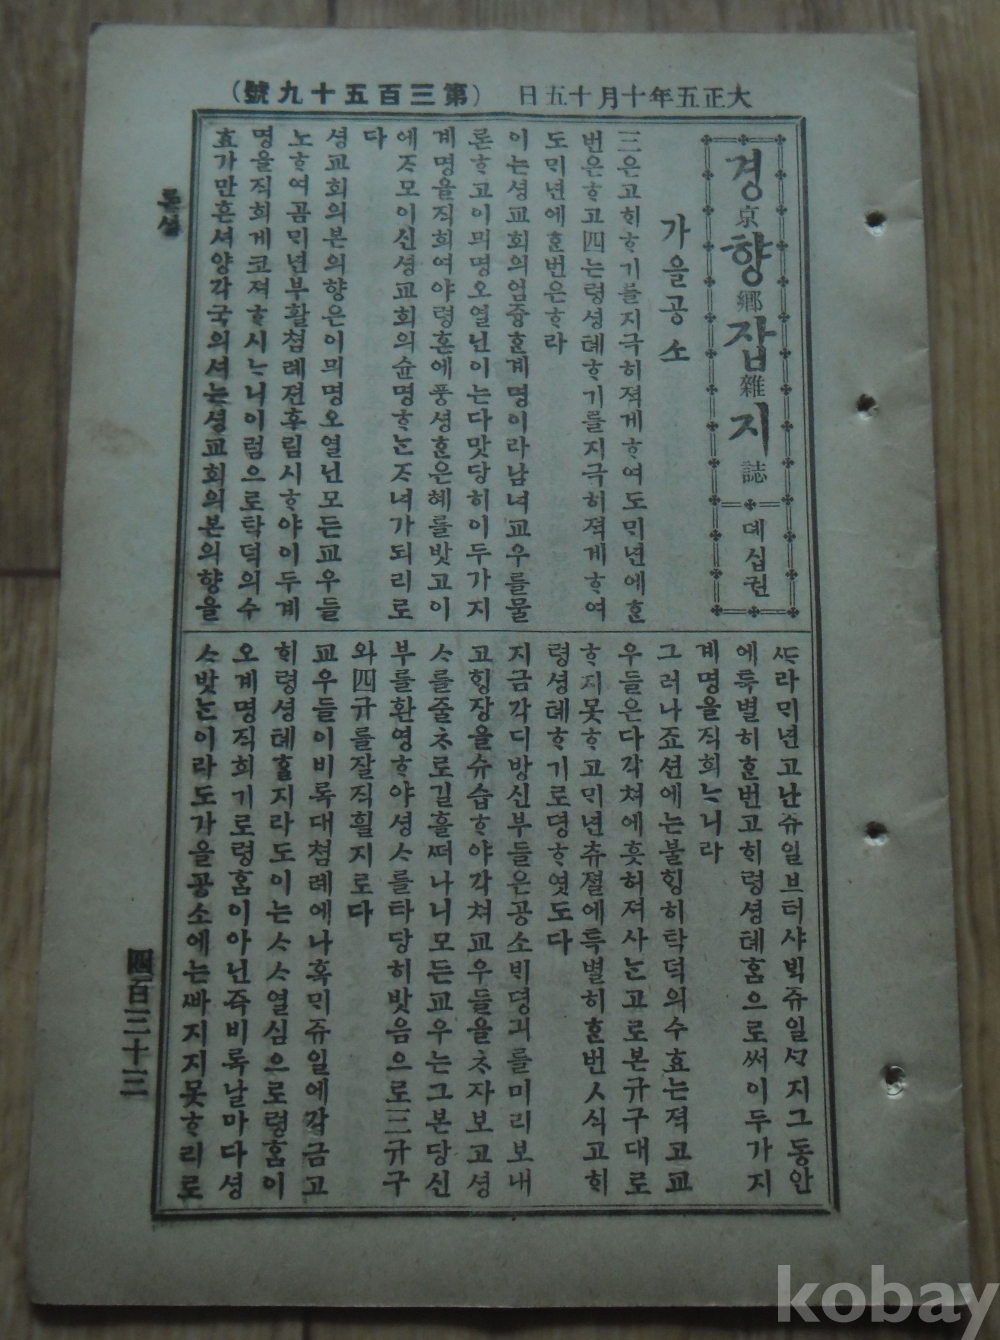 大正五年十月十五日 (第三百五十九號)
경京향鄕잡雜지誌 뎨십권
가을공소
三은고ᄒᆡᄒᆞ기를지극히젹게ᄒᆞ여도ᄆᆡ년에ᄒᆞᆫ
번은ᄒᆞ고四는령셩톄ᄒᆞ기를지극히젹게ᄒᆞ여
도ᄆᆡ년에ᄒᆞᆫ번은ᄒᆞ라
이는셩교회의엄즁ᄒᆞᆫ계명이라남녀교우를물
론ᄒᆞ고이믜명오열닌이는다맛당히이두가지
계명을직희여야령혼에풍셩ᄒᆞᆫ은혜를밧고이
에ᄌᆞ모이신셩교회의슌명ᄒᆞᄂᆞᆫᄌᆞ녀가되리로
다
셩교회의본의향은이믜명오열닌모든교우들
노ᄒᆞ여곰ᄆᆡ년부활쳠례젼후림시ᄒᆞ야이두계
명을직희게코져ᄒᆞ시ᄂᆞ니이럼으로탁덕의수
효가만흔셔양각국의셔는셩교회의본의향을
ᄯᅡ라ᄆᆡ년고난쥬일브터샤ᄇᆡᆨ쥬일ᄭᆞ지그동안
에특별히ᄒᆞᆫ번고ᄒᆡ령셩톄홈으로써이두가지
계명을직희ᄂᆞ니라
그러나죠션에는불ᄒᆡᆼ히탁덕의수효는젹고교
우들은다각쳐에흣허져사ᄂᆞᆫ고로본규구대로
ᄒᆞ지못ᄒᆞ고ᄆᆡ년츄졀에특별히ᄒᆞᆫ번식고ᄒᆡ
령셩톄ᄒᆞ기로뎡ᄒᆞ엿도다
지금각디방신부들은공소ᄇᆡᆨ뎡긔를미리보내
고ᄒᆡᆼ장을슈습ᄒᆞ야각쳐교우들을ᄎᆞ자보고셩
ᄉᆞ를줄ᄎᆞ로길흘ᄯᅥ나니모든교우는그본당신
부를환영ᄒᆞ야셩ᄉᆞ를타당히밧음으로三규구
와四규를잘직흴지로다
교우들이비록대쳠례에나혹ᄆᆡ쥬일에각금고
ᄒᆡ령셩톄ᄒᆞᆯ지라도이는ᄉᆞᄉᆞ열심으로령홈이
오계명직희기로령홈이아닌즉비록날마다셩
ᄉᆞ밧ᄂᆞᆫ이라도가을공소에는ᄲᅡ지지못ᄒᆞ리로
론셜
四百三十三
kobay